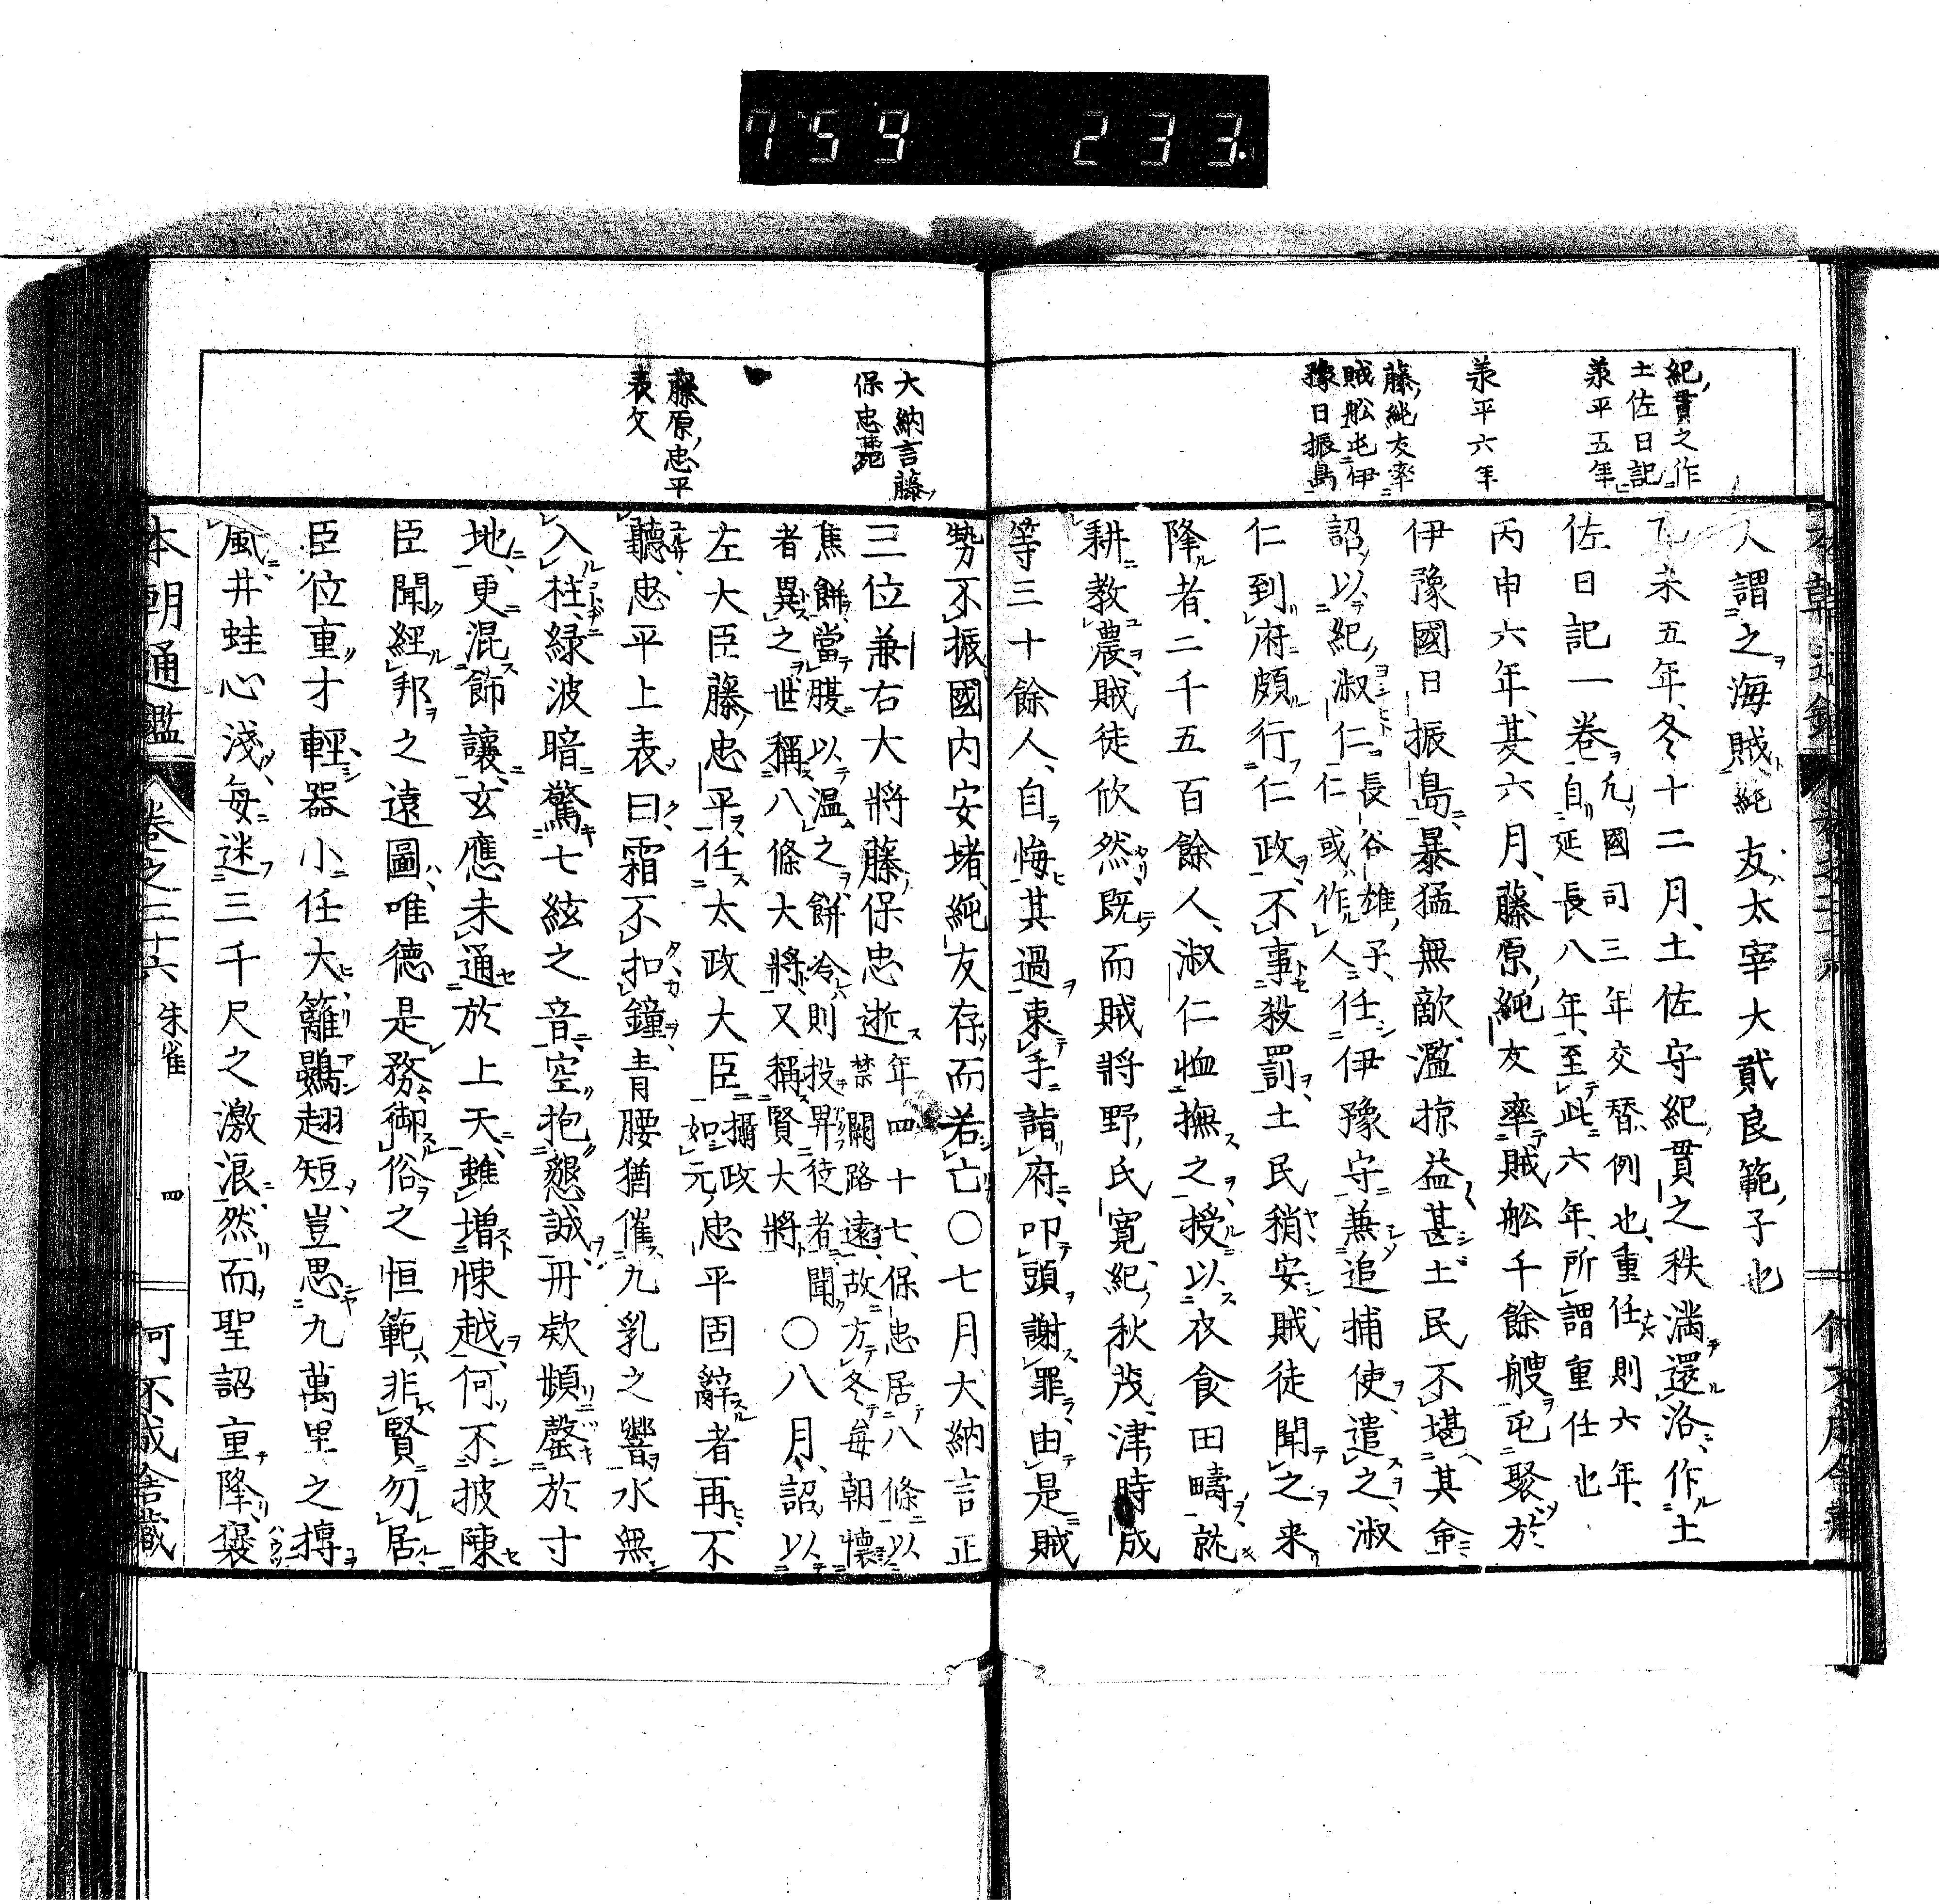 759 233
紀貫之作
土佐日記
承平五年
承平六年
藤純友率
賊舩屯伊
豫日振島
人謂之海賊純友太宰大貳良範子也
乙未五年冬十二月土佐守紀貫之秩滿還洛作土
佐日記一卷凡國司三年交替例也重任則六年
自延長八年至此六年所謂重任也
丙申六年夏六月藤原純友率賊舩千餘艘屯聚於
伊豫國日振島暴猛無敵濫掠益甚土民不堪其命
詔以紀淑仁長谷雄子
仁或作人任伊豫守兼追捕使遣之淑
仁到府頗行仁政不事殺罰土民稍安賊徒聞之来
降者二千五百餘人淑仁恤撫之授以衣食田疇就
耕教農賊徒欣然既而賊將野氏寛紀秋茂津時成
等三十餘人自悔其過束手詣府叩頭謝罪由是賊
大納言藤
保忠薨
藤原忠平
表文
勢不振國内安堵純友存而若亡〇七月大納言正
三位兼右大將藤保忠逝年四十七保忠居八條以
禁闕路遠故方冬每朝懷
焦餅當腰以温之餅冷則投畀徒者聞
者異之世稱八條大將又稱賢大將〇八月詔以
左大臣藤忠平任太政大臣攝政
如元忠平固辭者再不
聽忠平上表曰霜不扣鐘青腰猶催九乳之響水無
入柱緑波暗驚七絃之音空抱懇誠冊欵頻罄於寸
地更混飾讓玄應未通於上天雖增悚越何不披陳
臣聞經邦之遠圖唯德是務御俗之恒範非賢勿居
臣位重才輕器小任大籬鷃翅短豈思九萬里之摶
風井蛙心淺每迷三千尺之激浪然而聖詔重降褒
本朝通鑑 卷之二十六 朱雀 四 何不成舎藏